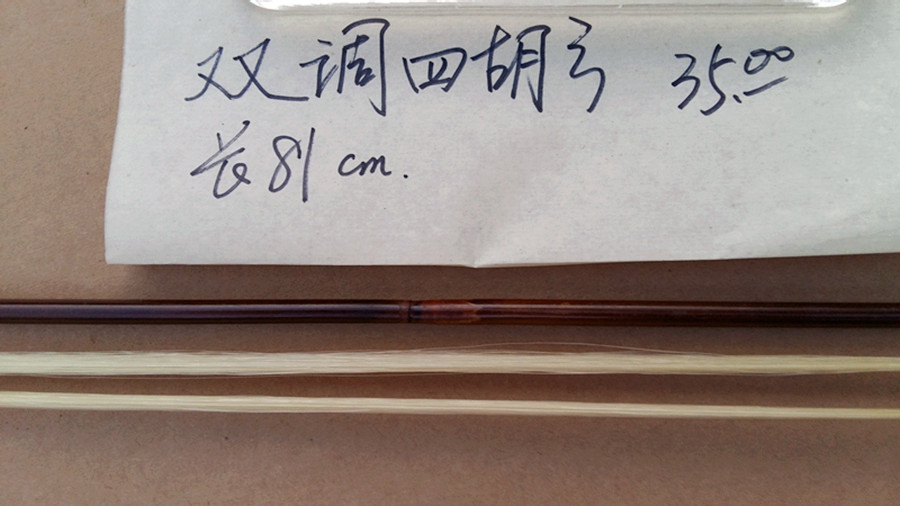 双调四胡弓 35.00
长81cm.